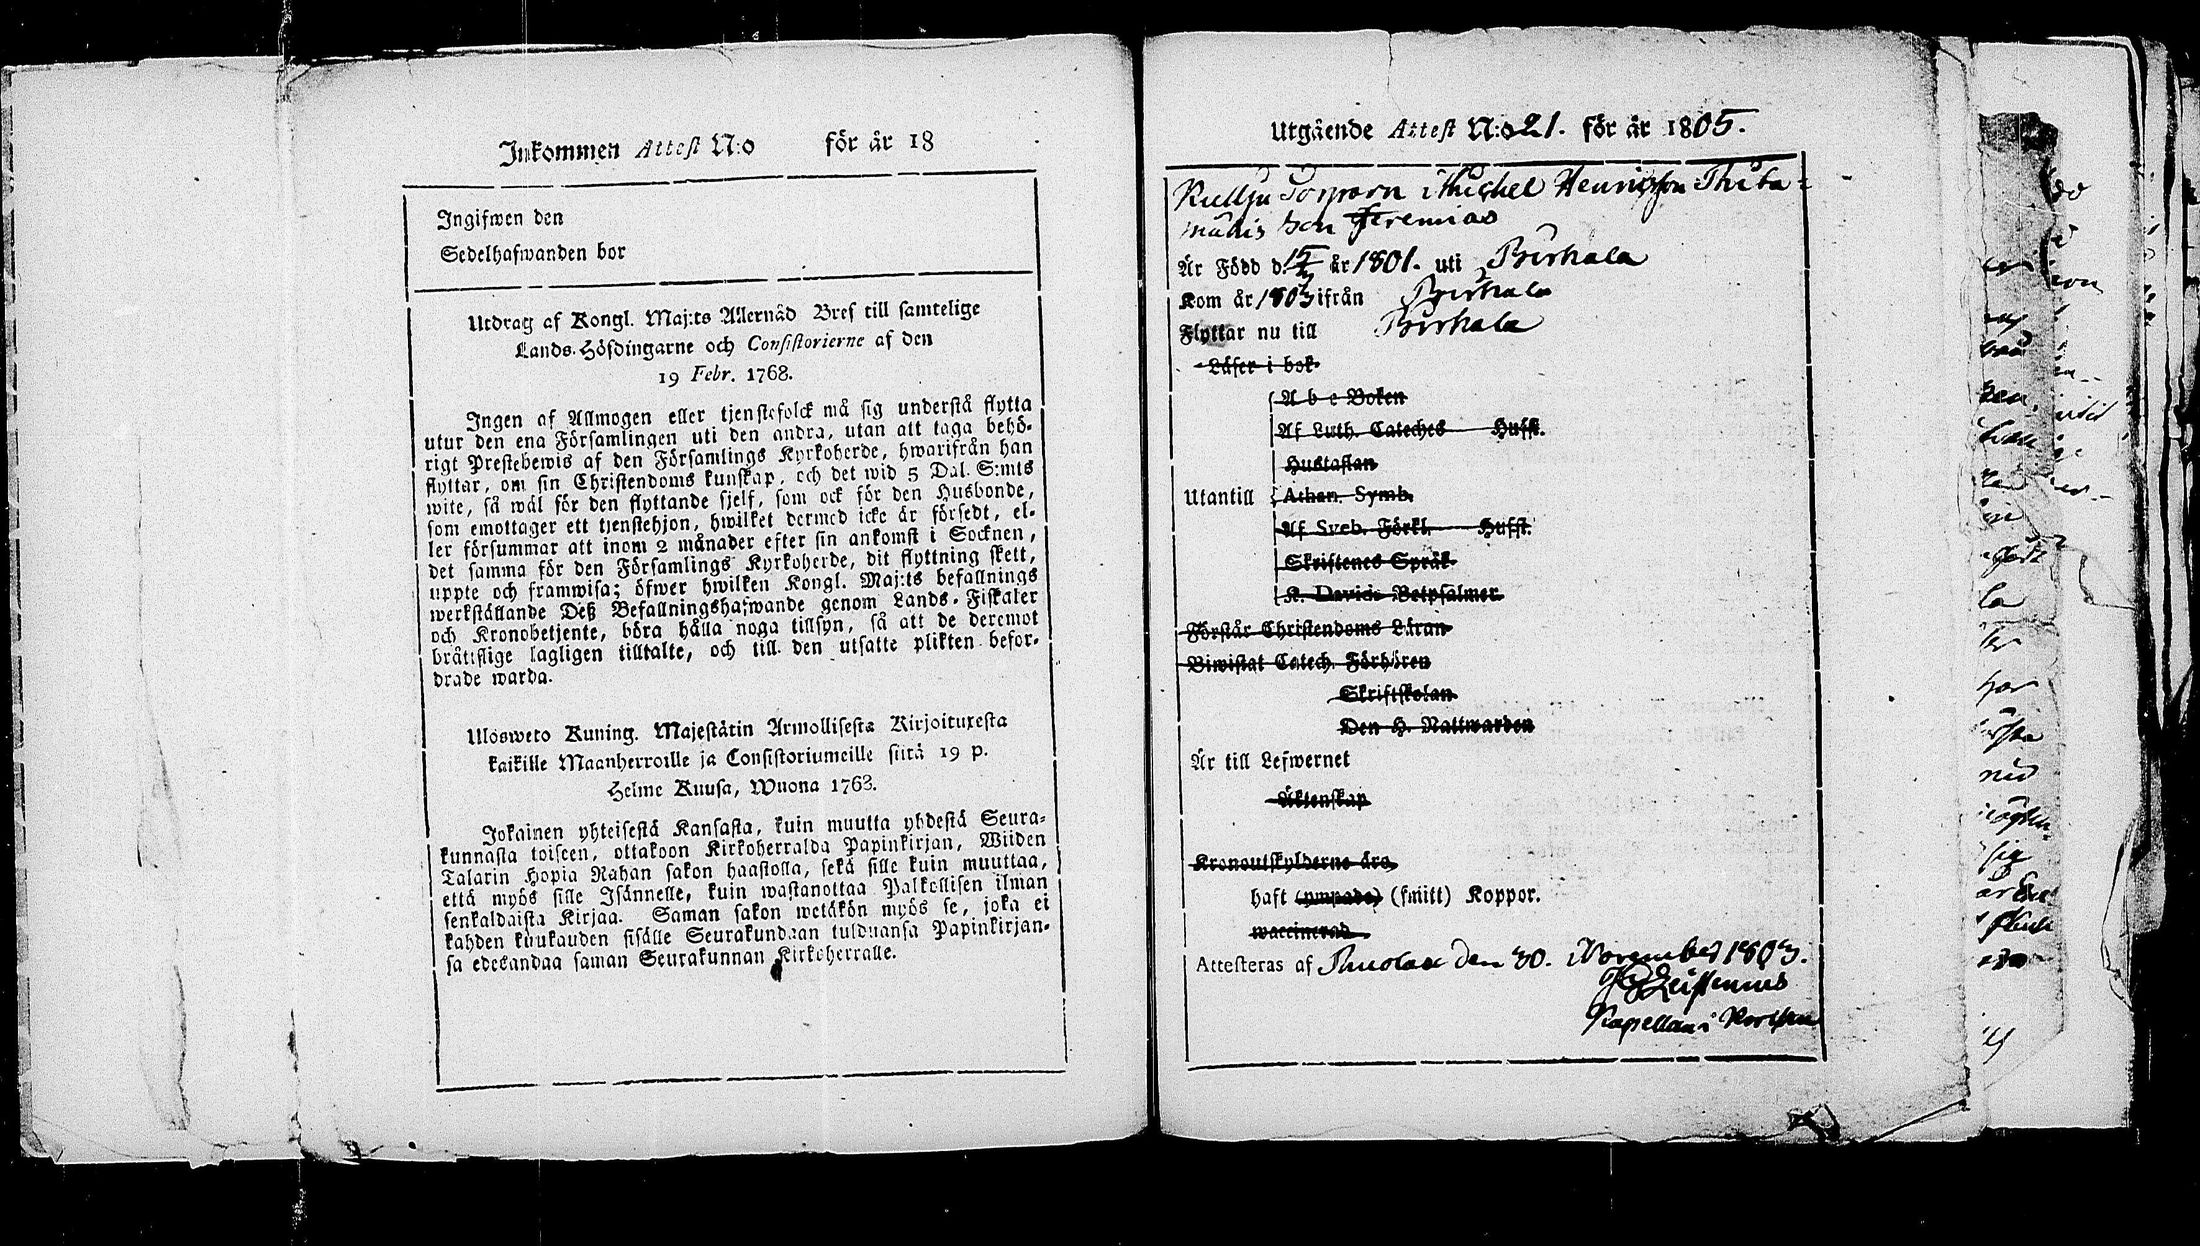 Inkommen Attest N:o för år 18
Ingifwen den
Sedelhafwanden bor
Utdrag af Kongl. Maj:ts Allernåd Bref till samtelige
Lands-Höfdingarne och Consistorierne af den
19 Febr. 1768.
Ingen af Allmogen eller tjenstefolck må sig understå flytta
utur den ena Församlingen uti den andra, utan att taga behö-
rigt Prestebewis af den Församlings Kyrkoherde, hwarifrån han
flyttar, om sin Christendoms kunskap, och det wid 5 Dal. S:mts
wite, så wäl för den flyttande sjelf, som ock för den Husbonde,
som emottager ett tjenstehjon, hwilket dermed icke är försedt, el-
ler försummar att inom 2 månader efter sin ankomst i Socknen,
det samma för den Församlings Kyrkoherde, dit flyttning skett,
uppte och framwisa; öfwer hwilken Kongl. Maj:ts befallnings
werkställande Deß Befallningshafwande genom Lands-Fiskaler
och Kronobetjente, böra hålla noga tillsyn, så att de deremot
bråttslige lagligen tilltalte, och till den utsatte plikten befor-
drade warda.
Ulosweto Kuning. Majestätin Armollisesta Kirjoituxesta
kaikille Maanherroille ja Consistoriumeille siitä 19 p.
Helme Kuusa, Wuona 1768.
Jokainen yhteisestä Kansasta, kuin muutta yhdestä Seura-
kunnasta toiseen, ottakoon Kirkoherralda Papinkirjan, Wiiden
Talarin Hopia Rahan sakon haastolla, sekä sille kuin muuttaa,
että myös sille Isännelle, kuin wastanottaa Palkollisen ilman
senkaldaista Kirjaa. Saman sakon wetäkön myös se, joka ei
kahden kuukauden sisälle Seurakundaan tulduansa Papinkirjan-
sa edesandaa saman Seurakunnan Kirkoherralle.
Utgående Attest N:o 21. för år 1805.
Torparn Michel Henricsson
son Jeremias
Är Född d. 15/2 år 1801. uti Birkala
Kom år 1803 ifrån Birkala
Flyttar nu till Birkala
Läser i bok
A b c Boken
Af Luth. Cateches Hufst.
Hustaflan
Utantill Athan. Symb.
Af Sveb. Förkl. Hufst.
Skriftenes Språk
K. Davids Botpsalmer
Förstår Christendoms Läran
Biwistat Catech. Förhören
Skriftskolan
Den H. Nattwarden
Är till Lefwernet
Äktenskap
Kronoutskylderne äro
haft (ympade) (smitt) Koppor.
waccinerad
Attesteras af den 30. November 1805.
Kapellan i